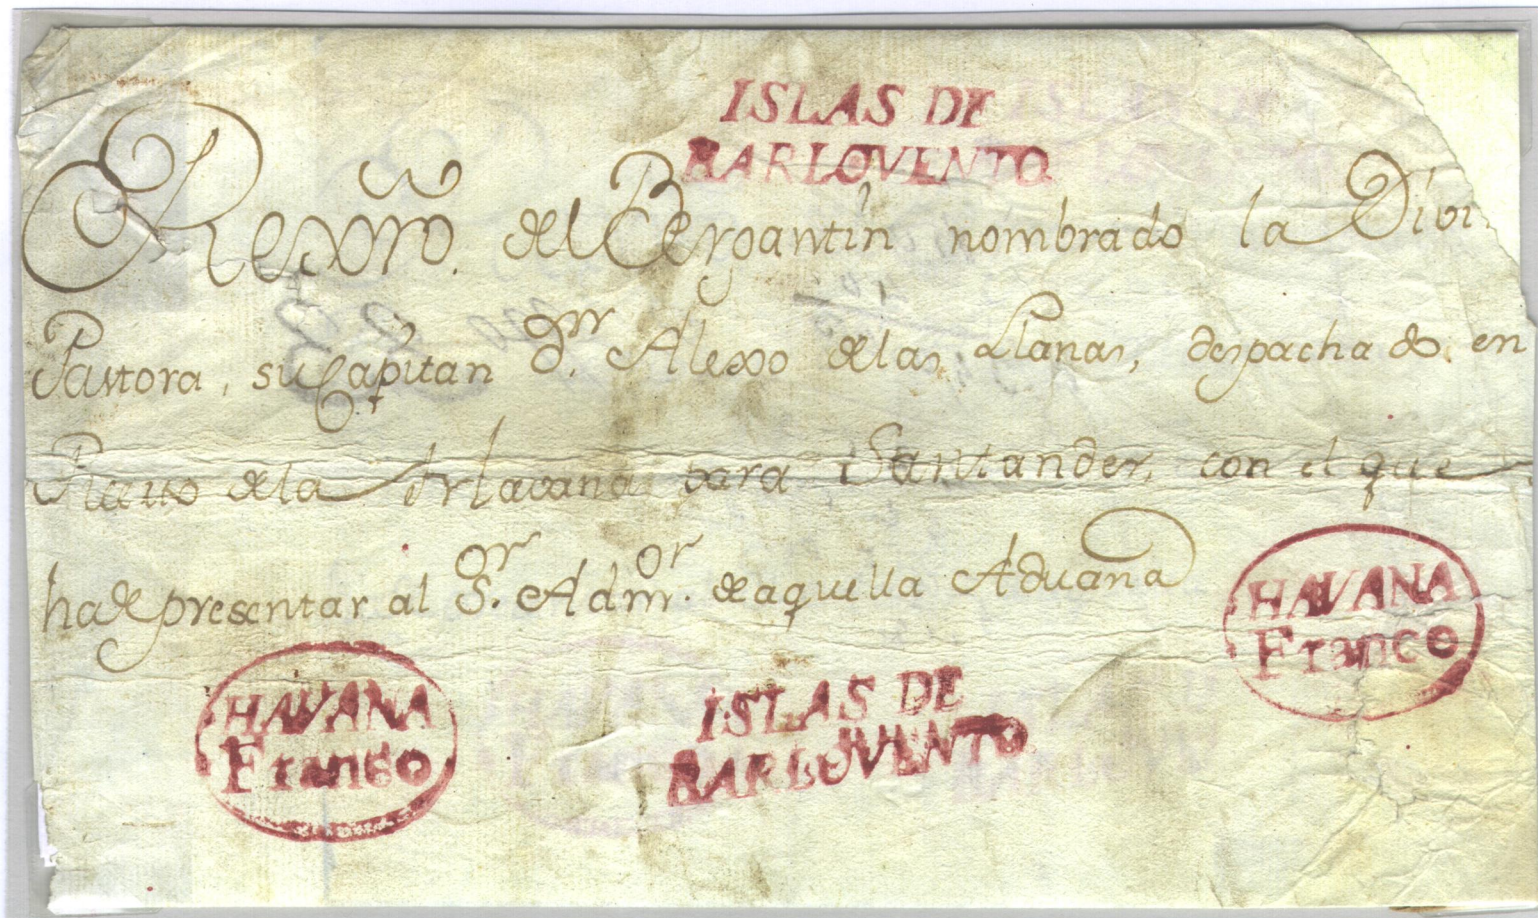 ISLAS DE
BARLOVENTO
Rexro. del Bergantin nombrado la Divi
Pastora, su Capitan dn. Alexo delas Llanas, despachado en
Puerto dela Havana para Santander, con el que
ha de presentar al Sor. Admor. de aquella Aduana
HAVANA
Franco
HAVANA
Franco
ISLAS DE
BARLOVENTO